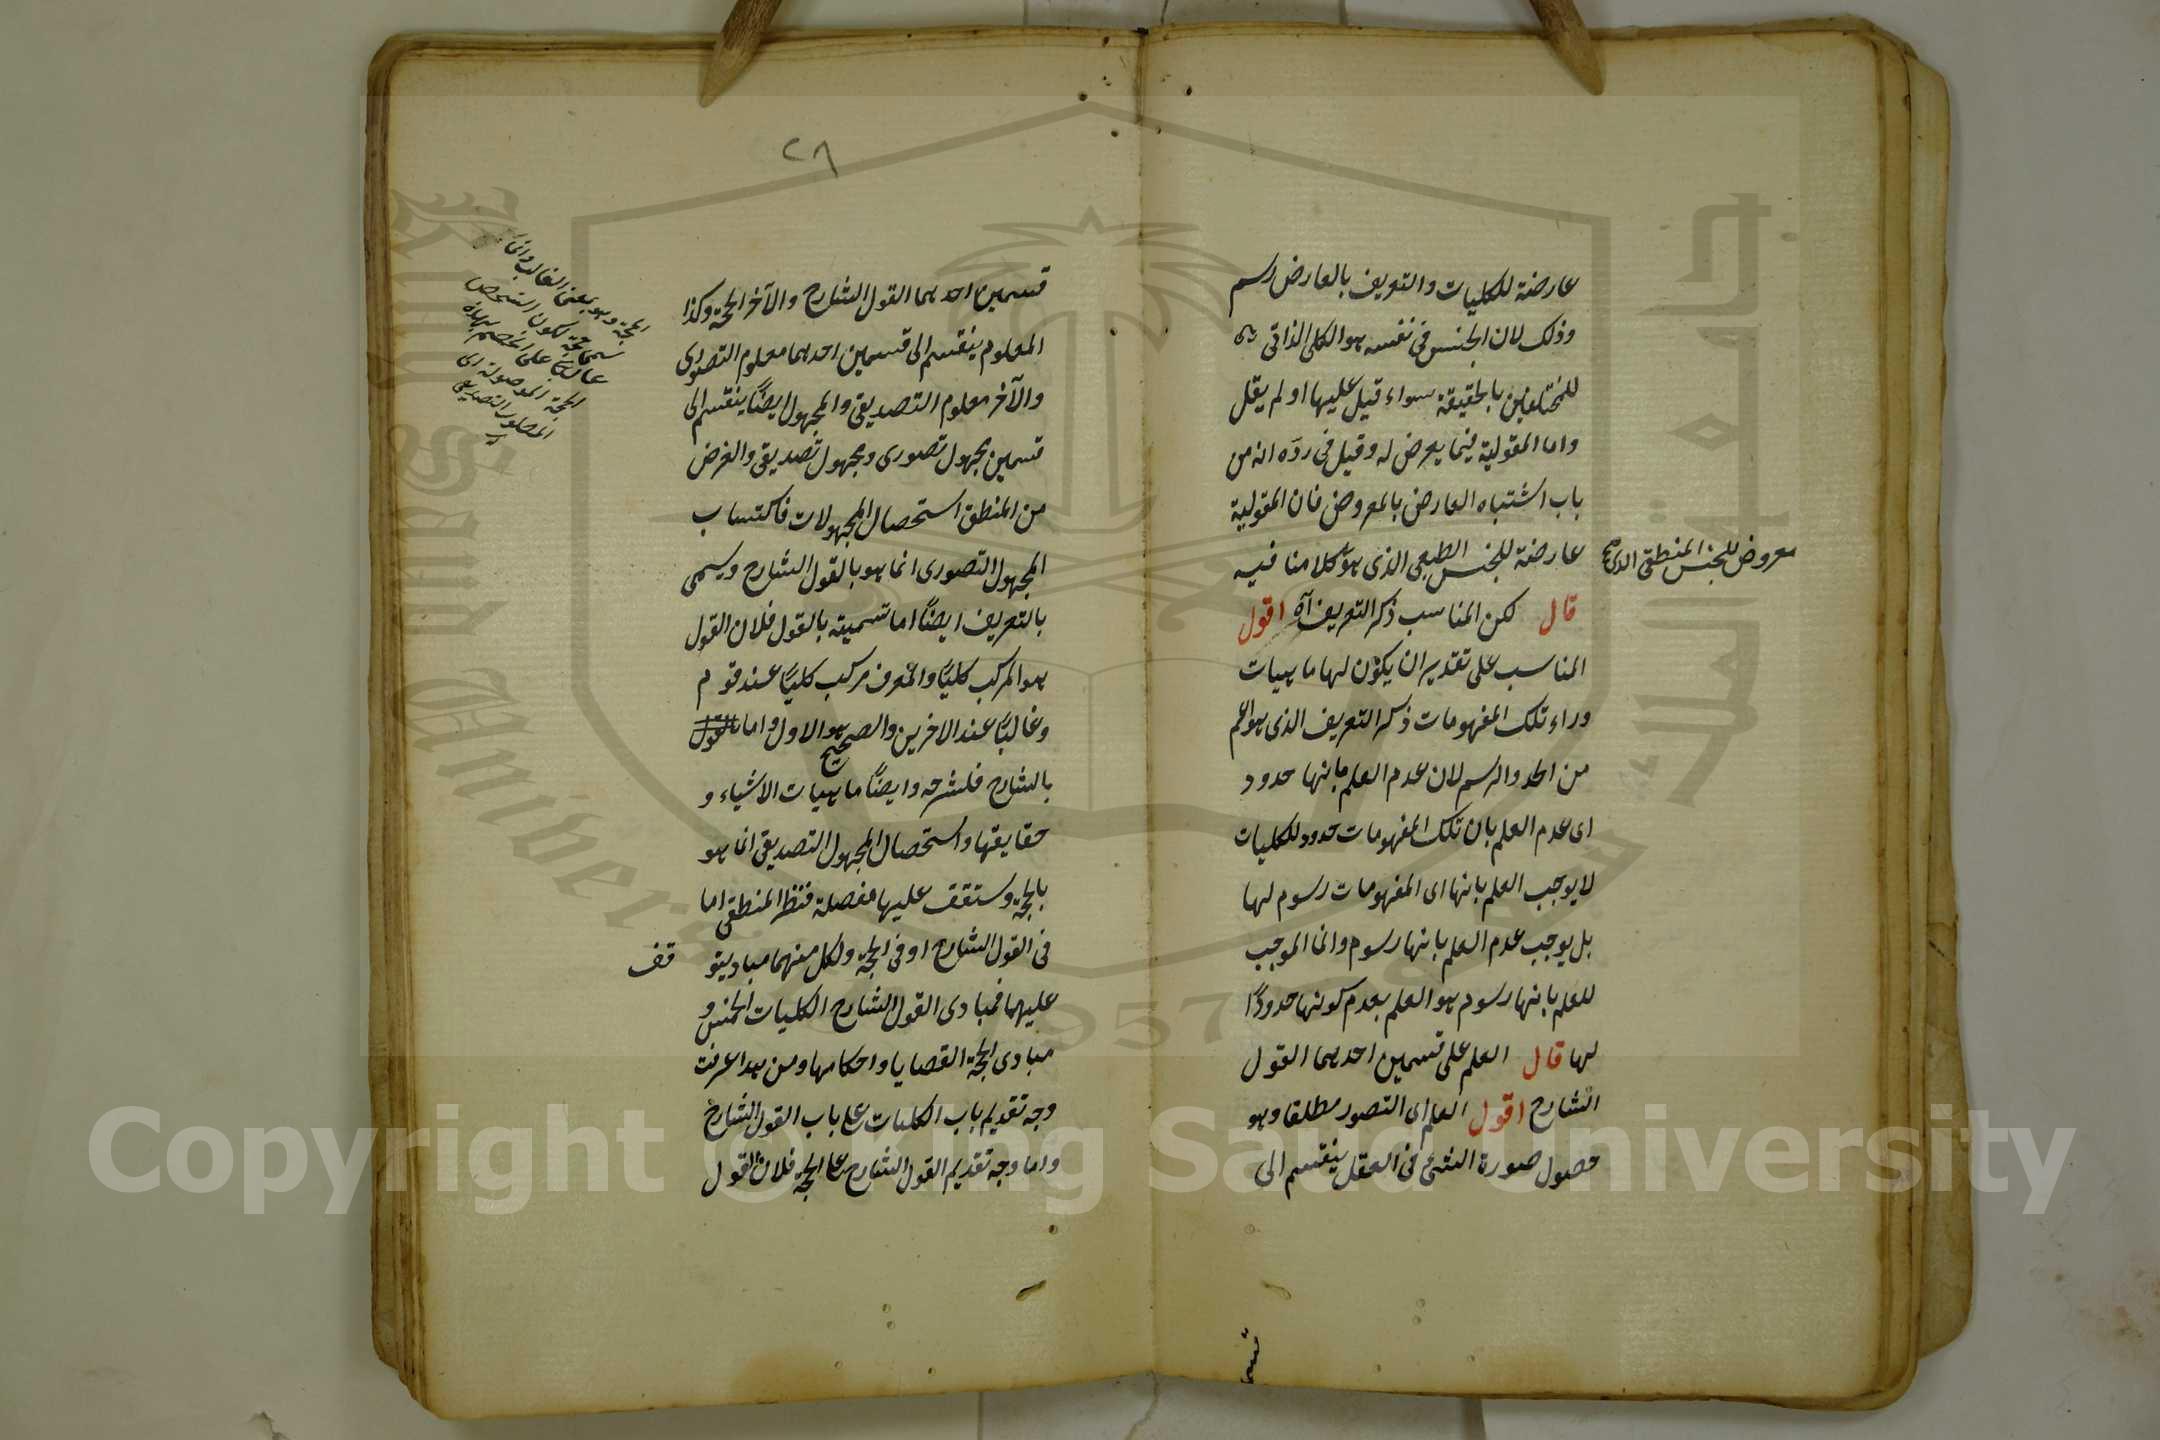 عارضة للكليات والتعريف بالعارض رسم
وذلك لان الجنس في نفسه هو الكلي الذاتي
للمختلفين بالحقيقة سواء قيل عليها او لم يقل
واما المقولية فيما يعرض له وقيل في رده انه من
باب اشتباه العارض بالمعروض فان المقولية
عارضة للجنس الطبعي الذي هو كلامنا فيه
معروض للجنس المنطقي الذي
قال لكن المناسب ذكر التعريف آه اقول
المناسب على تقدير ان يكون لها ماهيات
وراء تلك المفهومات ذكر التعريف الذي هو اعم
من الحد والرسم لان عدم العلم بانها حدود
اى عدم العلم بان تلك المفهومات حدود للكليات
لا يوجب العلم بانها اى المفهومات رسوم لها
بل يوجب عدم العلم بانها رسوم وانما الموجب
للعلم بانها رسوم هو العلم بعدم كونها حدودًا
لها قال العلم على قسمين احدهما القول
الشارح اقول العلم اى التصور مطلقا وهو
حصول صورة الشئ في العقل ينقسم الى
قسمي
٢٨
قسمين احدهما القول الشارح والآخر الحجة وكذا
المعلوم ينقسم الى قسمين احدهما معلوم التصورى
والآخر معلوم التصديقى والمجهول ايضًا ينقسم الى
قسمين مجهول تصورى ومجهول تصديقى والغرض
من المنطق استحصال المجهولات فاكتساب
المجهول التصورى انما هو بالقول الشارح ويسمى
بالتعريف ايضًا اما تسميته بالقول فلان القول
هو المركب كليًا والمعرف مركب كليًا عند قوم
وغالبًا عند الاخرين والصحيح هو الاول واما القول
بالشارح فلشرحه وايضًا ماهيات الاشياء و
حقايقها واستحصال المجهول التصديقى انما هو
بالحجة وستقف عليها مفصلة فنظر المنطقى اما
فى القول الشارح او فى الحجة ولكل منهما مبادي يتو
قف
عليهما فمبادى القول الشارح الكليات الخمس و
مبادى الحجة القضايا واحكامها ومن هذا عرفت
وجه تقديم باب الكليات على باب القول الشارح
واما وجه تقديم القول الشارح على الحجة فلان القول
الحجة وهو بمعنى الغالب وانما
سمى حجة لكون الشخص
غالبًا على الخصم بهذه
الحجة الموصولة الى
المطلوب التصديقي
Copyright © King Saud University
جامعة الملك سعود
King Saud University
1957